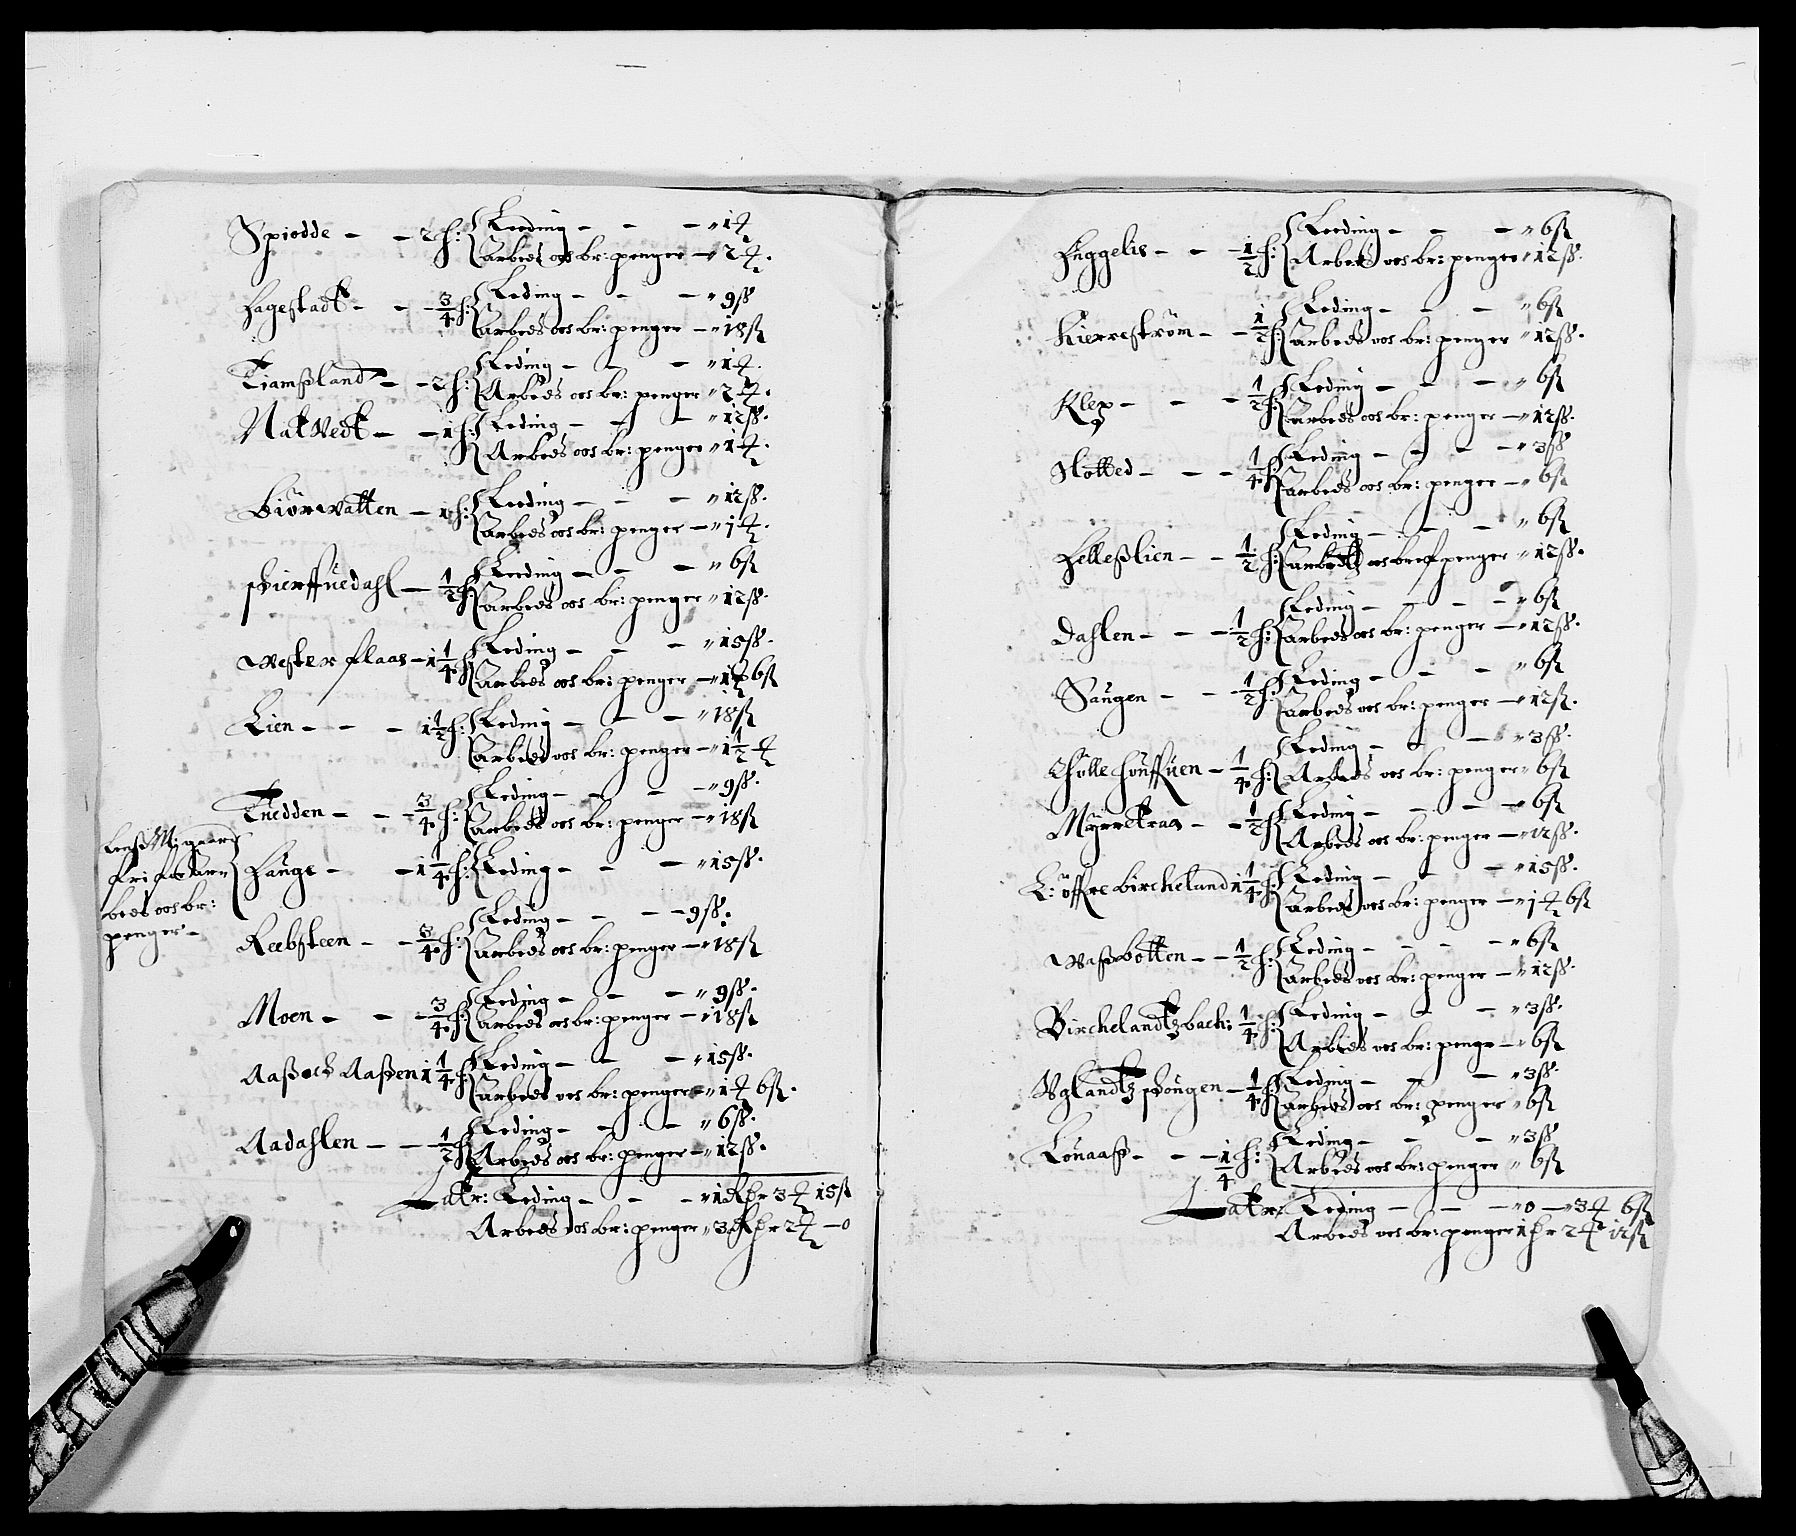 Spiodde – – 2 h: Leeding – – – „ 1 ɱ
Arbeds oos br: penger – „ 2 ɱ.
Hagestadt – – – 3/4 h: Leding – – – „ 9 ß
Arbeds oos br: penger – „ 18 ß
Tiamßland – – 2 h: Leding – – – „ 1 ɱ.
Arbeds oos br: penger „ 2 ɱ.
Natvedt – – 1 h: Leding – – – „ 12 ß.
Arbeds oos br: penger „ 1 ɱ.
Biörvatten – 1 h: Leeding – – – „ 12 ß.
Arbeds oos br: penger – „ 1 ɱ.
Leeding – – – „ 6 ß
1/2 h: Arbeds oos br: penger „ 12 ß.
Wester flaas – 1 1/4 h: Leding – – – „ 15 ß.
Arbeds oos br: penger – „ 1 ɱ 6 ß
Lien – – – 1 1/2 h: Leding – – – „ 18 ß
Arbeds oos br: penger – „ 1 1/2 ɱ
Tuedden – – – 3/4 h: Leding – – – „ 9 ß.
Arbeds oos br: penger – „ 18 ß
fri for Ar=
beds oos br:
penger –
Hauge – – 1 1/4 h: Leding – – – „ 15 ß.
Reebsteen – – 3/4 h: Leding – – – 9 ß.
Arbeds oos br: penger – „ 18 ß
Moen – – – 3/4 h: Leding – – – „ 9 ß.
Arbeds oos br: penger – „ 18 ß
Aaß och Aaßen 1 1/4 h: Leding – – – „ 15 ß.
Arbeds oos br: penger – „ 1 ɱ 6 ß.
Aadahlen – – 1/2 h: Leding – – – „ 6 ß.
Arbeds oos br: penger – „ 12 ß.
Latr: Leding – – – „ 1 Rdr 3 ɱ 15 ß
Arbeds oos br: penger „ 3 Rdr 2 ɱ – 0
Huggelis – – – 1/2 h: Leeding – – – „ 6 ß
Arbeds oos br: penger „ 12 ß.
Kierreström – – 1/2 h: Leding – – – „ 6 ß
Arbeds oos br: penger „ 12 ß.
Klep – – – 1/2 h: Leding – – – „ 6 ß
Arbeds oos br: penger – „ 12 ß.
Slotted – – – 1/4 h: Leding – – – „ 3 ß
Arbeds oos br: penger – „ 6 ß
Helleßlien – – 1/2 h: Leding – – – „ 6 ß
Arbedtz oos breff penger „ 12 ß.
Dahlen – – – 1/2 h: Leding – – – „ 6 ß
Arbeds oos br: penger – „ 12 ß.
Saugen – – – 1/2 h: Leding – – – „ 6 ß
Arbeds oos br: penger – „ 12 ß.
Leding – – – „ 3 ß.
1/4 h: Arbeds oos br: penger „ 6 ß
Myrretraa – – 1/2 h: Leding – – – „ 6 ß
Arbeds oos br: penger – „ 12 ß.
L: öffre bircheland 1 1/4 h: Leding – – – „ 15 ß.
Arbeds oos br: penger – „ 1 ɱ 6 ß
Waßbotten – – 1/2 h: Leding – – – „ 6 ß
Arbeds oos br: penger – „ 12 ß.
Birchelandtzbach: 1/4 h: Leding – – – „ 3 ß.
Arbeds oos br: pengr – „ 6 ß
Uglandtz – 1/4 h: Leding – – – „ 3 ß.
Arbeds oos br: penger „ 6 ß
Lönaaß – – – 1/4 h: Leding – – – „ 3 ß
Arbeds oos br: penger „ 6 ß
Latr: Leding – – – „ 0 – „ 3 ɱ 6 ß
Arbeds oos br: penger 1 hr 2 ɱ 12 ß